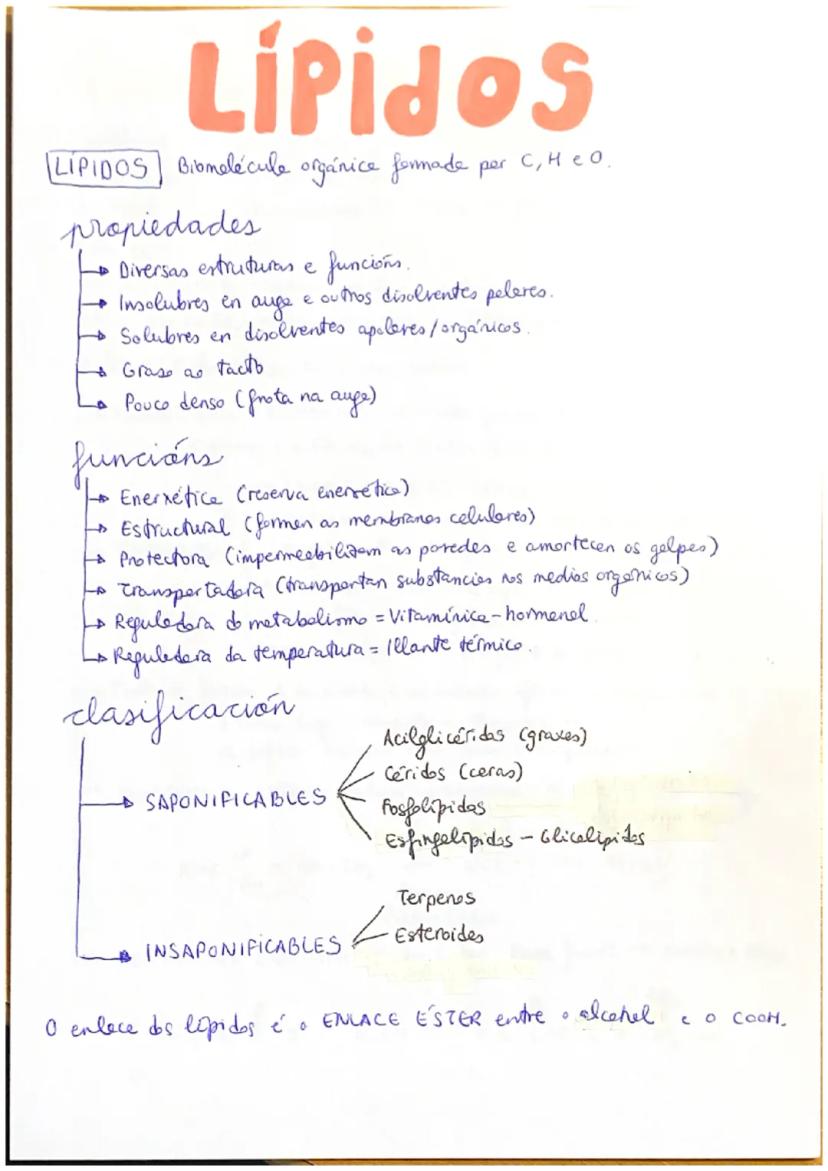 LÍPIDOS
LÍPIDOS Biomolécula orgánica formada por C, H e O.
propiedades
Diversas estruturas e funcións.
Insolubres en auga e outros disolventes polares.
Solubres en disolventes apolares/orgánicos.
Graso ao tacto
Pouco denso (frota na auga)
funcións
Enerxética (reserva enerxética)
Estructural (forman as membranas celulares)
Protectora (impermeabilizam as paredes e amortecen os golpes)
Transportadora (transportan substancias nos medios orgánicos)
Reguladora do metabolismo = Vitamínica-hormonal
Reguladora da temperatura = Illante térmico.
clasificación
Acilglicéridos (graxas)
Céridos (ceras)
SAPONIFICABLES
Fosfolípidos
Esfingolípidos - Glicolípidos
Terpenos
Esteroides
INSAPONIFICABLES
O enlace dos lípidos é o ENLACE ÉSTER entre o alcohol e o COOH.